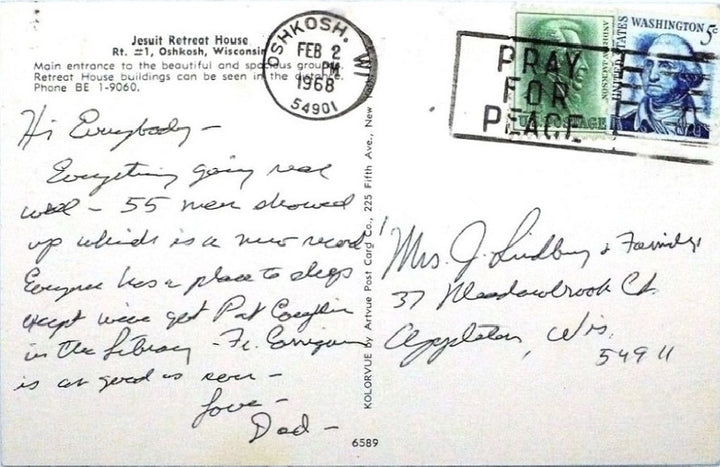 Jesuit Retreat House
Rt. #1, Oshkosh, Wisconsin
Main entrance to the beautiful and spacious grounds.
Retreat House buildings can be seen in the distance.
Phone BE 1-9060.
OSHKOSH, WI
FEB 2
PM
1968
54901
PRAY
FOR
PEACE
ANDREW JACKSON
U.S. POSTAGE
UNITED STATES
WASHINGTON 5c
Hi Everybody -
Everything going real
well - 55 men showed
up which is a new record!
Everyone has a place to sleep
except we've got Pat Coughlin
in the Library - Fr.
is as good as ever -
Love -
Dad -
KOLORVUE by Artvue Post Card Co., 225 Fifth Ave., New
6589
Mrs. J. Lindberg & Family
37 Meadowbrook Ct.
Appleton, Wis.
54911